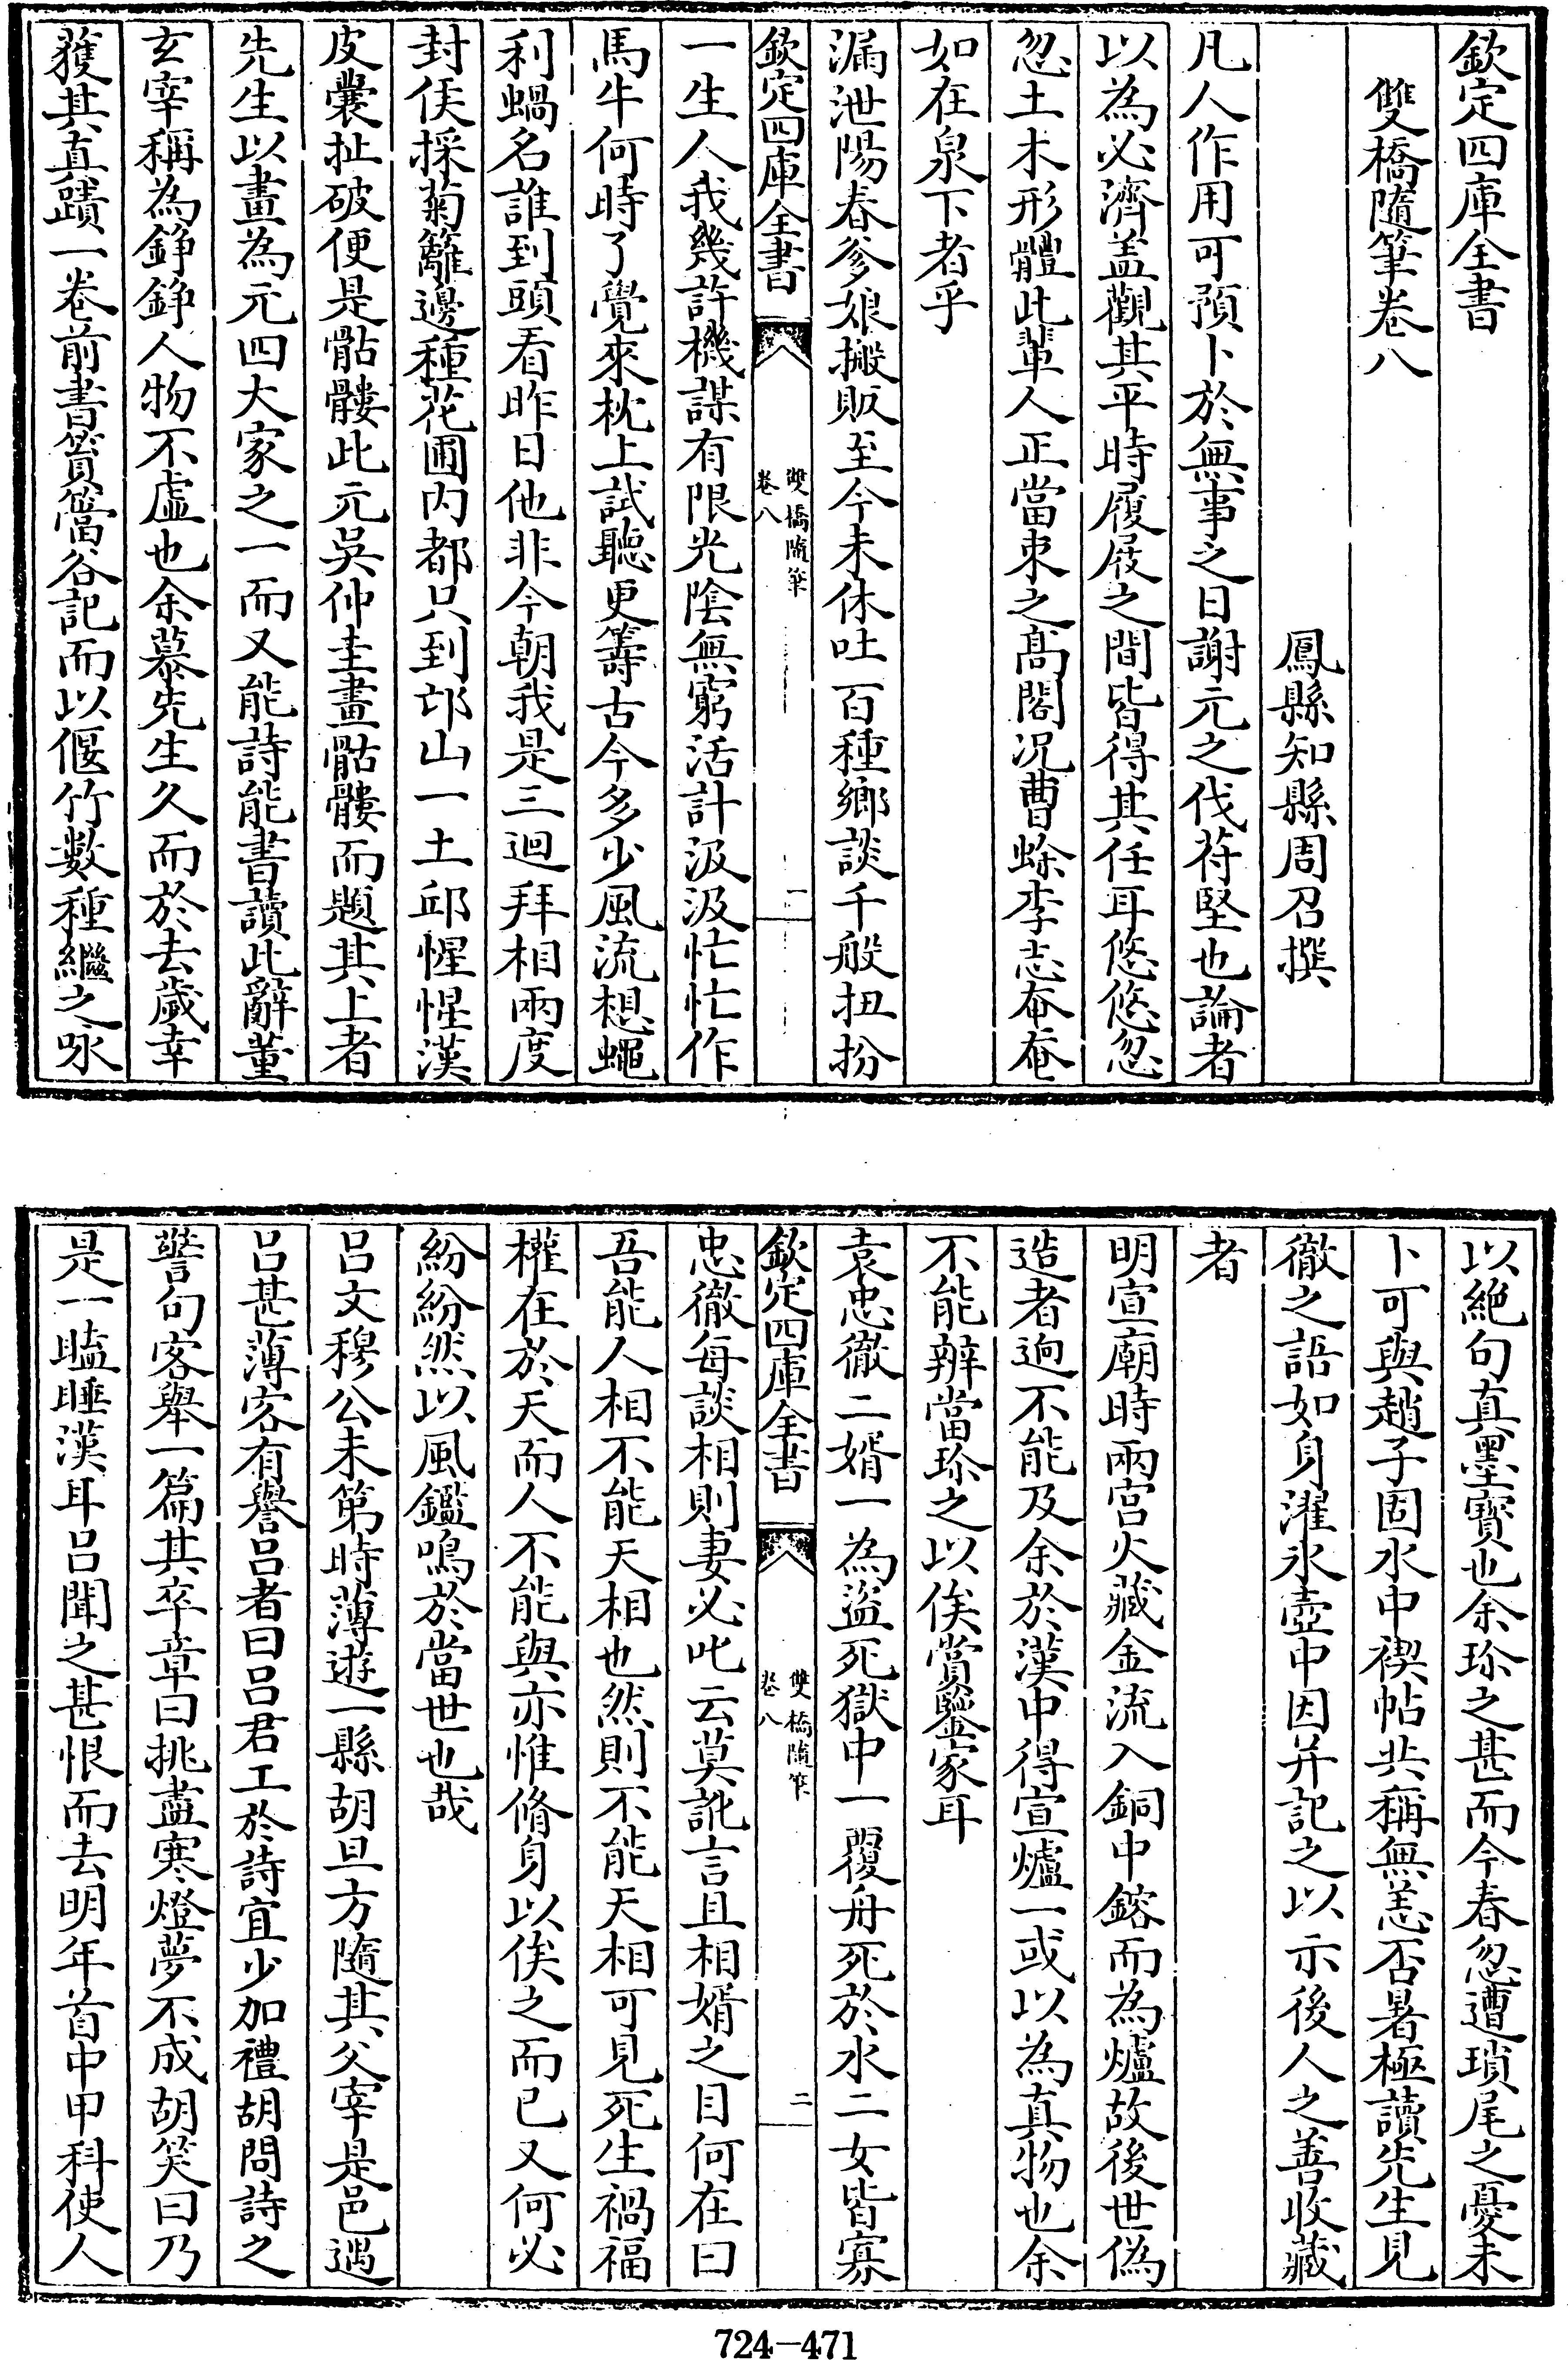 欽定四庫全書
雙橋隨筆卷八
鳳縣知縣周召撰
凡人作用可預卜於無事之日謝元之伐苻堅也論者
以為必濟盖觀其平時履屐之間皆得其任耳悠悠忽
忽土木形體此輩人正當束之髙閣况曹蜍李志奄奄
如在泉下者乎
漏泄陽春爹娘搬販至今未休吐百種鄉談千般扭扮
欽定四庫全書
雙橋隨筆
卷八
一
一生人我幾許機謀有限光陰無窮活計汲汲忙忙作
馬牛何時了覺來枕上試聽更籌古今多少風流想蠅
利蝸名誰到頭看昨日他非今朝我是三迴拜相兩度
封侯採菊籬邊種花圃内都只到邙山一土邱惺惺漢
皮嚢扯破便是骷髏此元吳仲圭畫骷髏而題其上者
先生以畫為元四大家之一而又能詩能書讀此辭董
玄宰稱為錚錚人物不虛也余慕先生久而於去歲幸
獲其真蹟一卷前書篔簹谷記而以偃竹數種繼之咏
以絶句真墨寳也余珍之甚而今春忽遭瑣尾之憂未
卜可與趙子固水中禊帖共稱無恙否暑極讀先生見
徹之語如身濯氷壺中因并記之以示後人之善收藏
者
明宣廟時兩宫火藏金流入銅中鎔而為爐故後世偽
造者逈不能及余於漢中得宣爐一或以為真物也余
不能辨當珍之以俟賞鑒家耳
袁忠徹二婿一為盜死獄中一覆舟死於水二女皆寡
欽定四庫全書
雙橋隨筆
卷八
二
忠徹每談相則妻必叱云莫訛言且相婿之目何在曰
吾能人相不能天相也然則不能天相可見死生禍福
權在於天而人不能與亦惟脩身以俟之而已又何必
紛紛然以風鑑鳴於當世也哉
吕文穆公未第時薄遊一縣胡旦方隨其父宰是邑遇
吕甚薄客有譽吕者曰吕君工於詩宜少加禮胡問詩之
警句客舉一篇其卒章曰挑盡寒燈夢不成胡笑曰乃
是一瞌睡漢耳吕聞之甚恨而去明年首中甲科使人
724-471